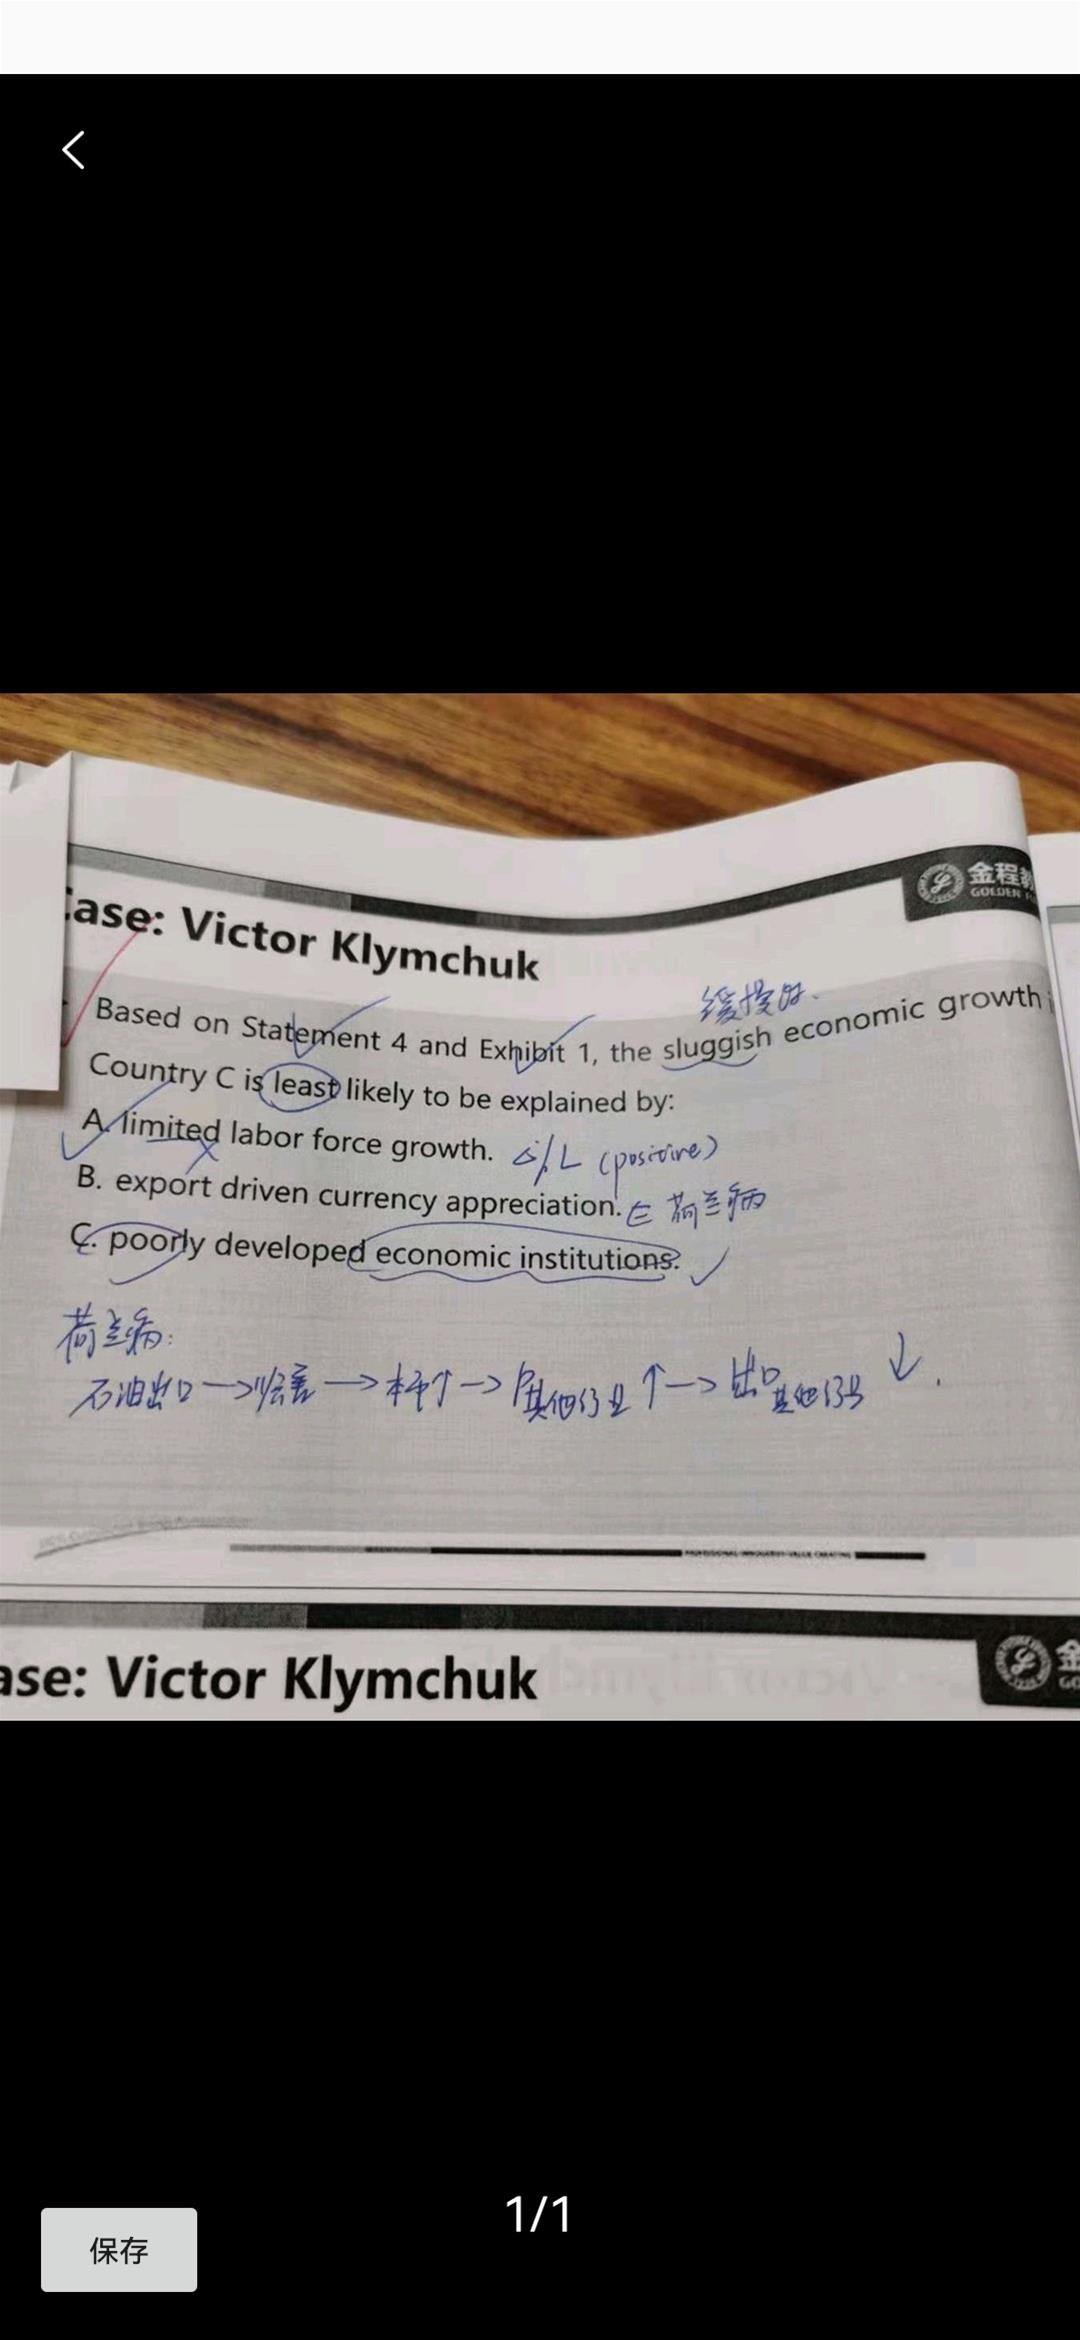 Case: Victor Klymchuk
金程教
GOLDEN
缓慢的.
Based on Statement 4 and Exhibit 1, the sluggish economic growth
Country C is least likely to be explained by:
A. limited labor force growth. △%L (positive)
B. export driven currency appreciation. 荷兰病
C. poorly developed economic institutions.
荷兰病:
石油出口→顺差→本币↑→P其他行业↑→出口其他行业↓.
ase: Victor Klymchuk
金
GO
1/1
保存